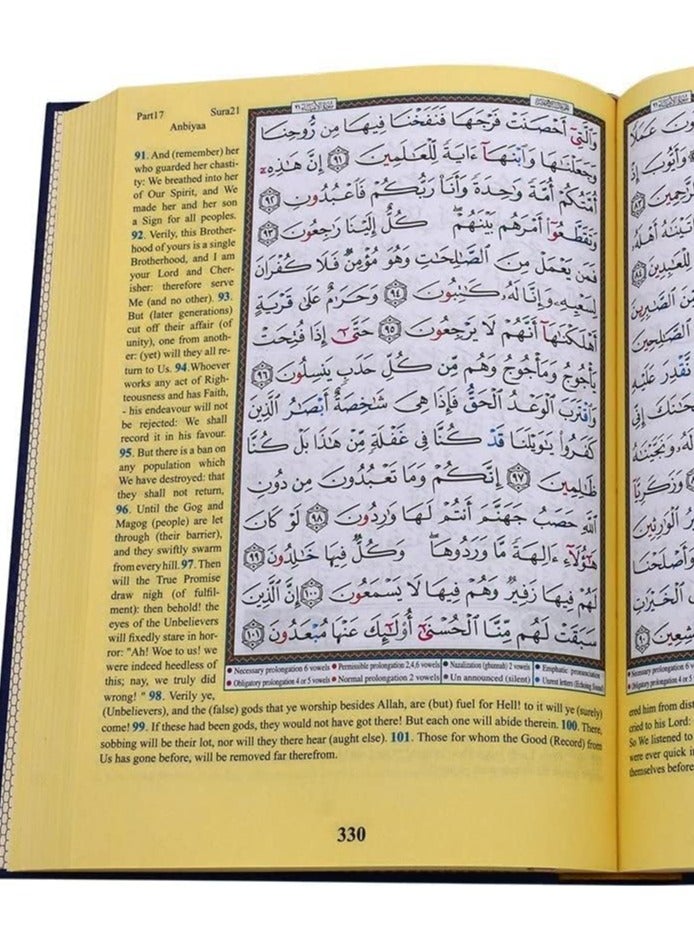 Part17 Sura21
Anbiyaa
91. And (remember) her
who guarded her chasti-
ty: We breathed into her
of Our Spirit, and We
made her and her son
a Sign for all peoples.
92. Verily, this Brother-
hood of yours is a single
Brotherhood, and I am
your Lord and Cher-
isher: therefore serve
Me (and no other). 93.
But (later generations)
cut off their affair (of
unity), one from anoth-
er: (yet) will they all re-
turn to Us. 94.Whoever
works any act of Righ-
teousness and has Faith,
- his endeavour will not
be rejected: We shall
record it in his favour.
95. But there is a ban on
any population which
We have destroyed: that
they shall not return,
96. Until the Gog and
Magog (people) are let
through (their barrier),
and they swiftly swarm
from every hill. 97. Then
will the True Promise
draw nigh (of fulfil-
ment): then behold! the
eyes of the Unbelievers
will fixedly stare in hor-
ror: "Ah! Woe to us! we
were indeed heedless of
this; nay, we truly did
wrong! " 98. Verily ye,
(Unbelievers), and the (false) gods that ye worship besides Allah, are (but) fuel for Hell! to it will ye (surely)
come! 99. If these had been gods, they would not have got there! But each one will abide therein. 100. There,
sobbing will be their lot, nor will they there hear (aught else). 101. Those for whom the Good (Record) from
Us has gone before, will be removed far therefrom.
وَٱلَّتِىٓ أَحْصَنَتْ فَرْجَهَا فَنَفَخْنَا فِيهَا مِن رُّوحِنَا
وَجَعَلْنَٰهَا وَٱبْنَهَآ ءَايَةً لِّلْعَٰلَمِينَ ٩١ إِنَّ هَٰذِهِۦٓ
أُمَّتُكُمْ أُمَّةً وَٰحِدَةً وَأَنَا۠ رَبُّكُمْ فَٱعْبُدُونِ ٩٢
وَتَقَطَّعُوٓا۟ أَمْرَهُم بَيْنَهُمْ ۖ كُلٌّ إِلَيْنَا رَٰجِعُونَ ٩٣
فَمَن يَعْمَلْ مِنَ ٱلصَّٰلِحَٰتِ وَهُوَ مُؤْمِنٌ فَلَا كُفْرَانَ
لِسَعْيِهِۦ وَإِنَّا لَهُۥ كَٰتِبُونَ ٩٤ وَحَرَٰمٌ عَلَىٰ قَرْيَةٍ
أَهْلَكْنَٰهَآ أَنَّهُمْ لَا يَرْجِعُونَ ٩٥ حَتَّىٰٓ إِذَا فُتِحَتْ
يَأْجُوجُ وَمَأْجُوجُ وَهُم مِّن كُلِّ حَدَبٍ يَنسِلُونَ ٩٦
وَٱقْتَرَبَ ٱلْوَعْدُ ٱلْحَقُّ فَإِذَا هِىَ شَٰخِصَةٌ أَبْصَٰرُ ٱلَّذِينَ
كَفَرُوا۟ يَٰوَيْلَنَا قَدْ كُنَّا فِى غَفْلَةٍ مِّنْ هَٰذَا بَلْ كُنَّا
ظَٰلِمِينَ ٩٧ إِنَّكُمْ وَمَا تَعْبُدُونَ مِن دُونِ
ٱللَّهِ حَصَبُ جَهَنَّمَ أَنتُمْ لَهَا وَٰرِدُونَ ٩٨ لَوْ كَانَ
هَٰٓؤُلَآءِ ءَالِهَةً مَّا وَرَدُوهَا ۖ وَكُلٌّ فِيهَا خَٰلِدُونَ ٩٩
لَهُمْ فِيهَا زَفِيرٌ وَهُمْ فِيهَا لَا يَسْمَعُونَ ١٠٠ إِنَّ ٱلَّذِينَ
سَبَقَتْ لَهُم مِّنَّا ٱلْحُسْنَىٰٓ أُو۟لَٰٓئِكَ عَنْهَا مُبْعَدُونَ ١٠١
Necessary prolongation 6 vowels Permissible prolongation 2,4,6 vowels Nazalization (ghunnah) 2 vowels Emphatic pronunciation
Obligatory prolongation 4 or 5 vowels Normal prolongation 2 vowels Un announced (silent) Unrest letters (Echoing Sound)
330
ered him from dist
cried to his Lord:
So We listened to
were ever quick i
themselves before